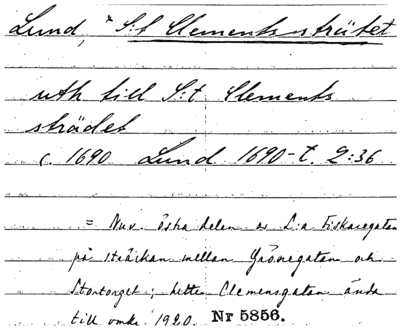 Lund, * S:t Clements strätet
uth till S:t Clements
strädet
c. 1690 Lund 1690-t. 2:36
= Nuv. östra delen av L:a Fiskaregatan
på sträckan mellan Grönegatan och
Stortorget; hette Clemensgatan ända
till omkr. 1920. Nr 5856.